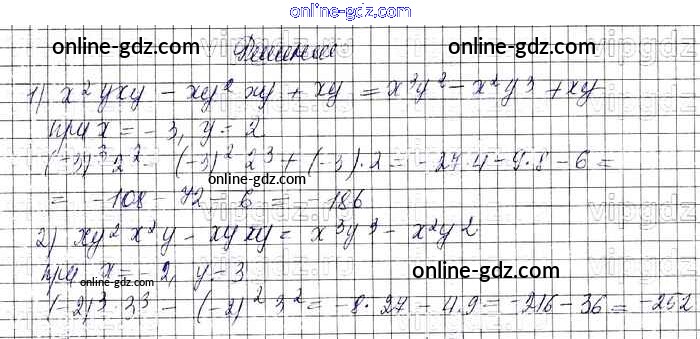 online-gdz.com
online-gdz.com Решение online-gdz.com
1) x²yxy - xy²xy + xy = x³y² - x²y³ + xy
при x = -3, y = 2
(-3)³2² - (-3)²2³ + (-3)·2 = -27·4 - 9·8 - 6 =
online-gdz.com
= -108 - 72 - 6 = -186
2) xy²x²y - xyxy = x³y³ - x²y2
при x = -2, y = 3
online-gdz.com
(-2)³·3³ - (-2)²3² = -8·27 - 4·9 = -216 - 36 = -252
online-gdz.com